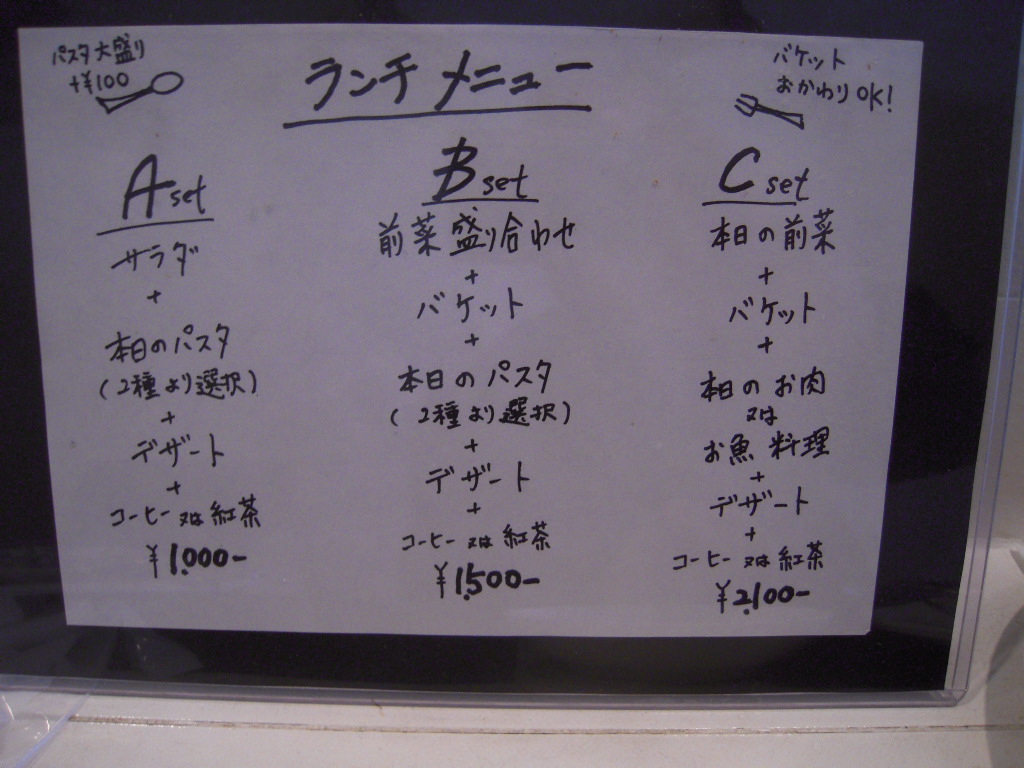 パスタ大盛り
+¥100
ランチ メニュー
バケット
おかわりOK!
A set
サラダ
+
本日のパスタ
(2種より選択)
+
デザート
+
コーヒー又は紅茶
¥1.000-
B set
前菜盛り合わせ
+
バケット
+
本日のパスタ
(2種より選択)
+
デザート
+
コーヒー又は紅茶
¥1.500-
C set
本日の前菜
+
バケット
+
本日のお肉
又は
お魚料理
+
デザート
+
コーヒー又は紅茶
¥2.100-